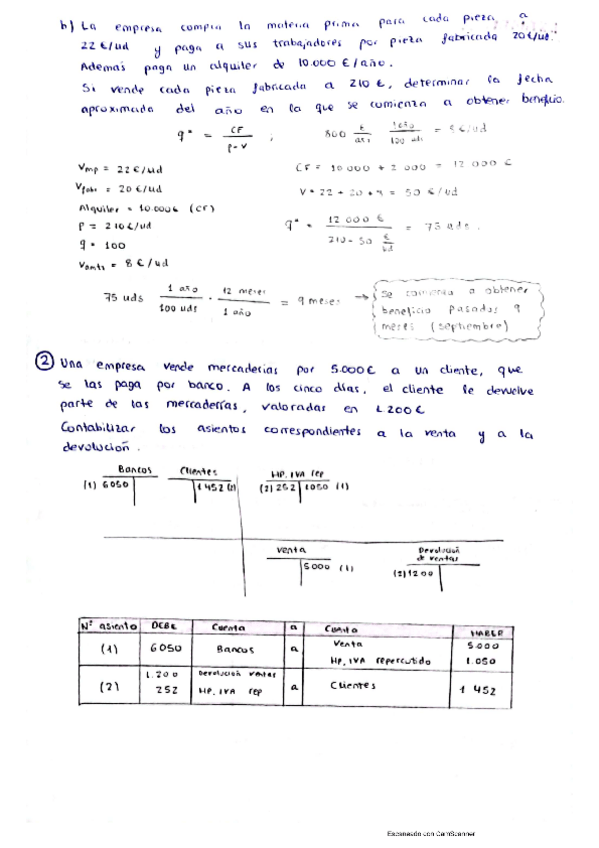 b) La empresa compra la materia prima para cada pieza a
22 €/ud y paga a sus trabajadores por pieza fabricada 20 €/ud.
Además paga un alquiler de 10.000 €/año.
Si vende cada pieza fabricada a 210 €, determinar la fecha
aproximada del año en la que se comienza a obtener beneficio.
q* = CF / p-v ; 800 € / año · 1 año / 100 uds = 8 €/ud
Vmp = 22 €/ud CF = 10 000 + 2 000 = 12 000 €
Vfabr = 20 €/ud V = 22 + 20 + 8 = 50 €/ud
Alquiler = 10.000€ (CF)
P = 210 €/ud q* = 12 000 € / 210 - 50 €/ud = 75 uds.
q = 100
= 8 €/ud
75 uds · 1 año / 100 uds · 12 meses / 1 año = 9 meses → Se comienza a obtener
beneficio pasados 9
meses (septiembre)
② Una empresa vende mercaderías por 5.000 € a un cliente, que
se las paga por banco. A los cinco días, el cliente le devuelve
parte de las mercaderías, valoradas en 1.200 €
Contabilizar los asientos correspondientes a la venta y a la
devolución.
Bancos Clientes HP. IVA rep
(1) 6050 1452 (2) (2) 252 1050 (1)
Venta Devolución
de ventas
5000 (1) (2) 1200
Nº asiento DEBE Cuenta a Cuenta HABER
(1) 6050 Bancos a Venta 5.000
HP. IVA repercutido 1.050
(2) 1.200 Devolución ventas a Clientes 1 452
252 HP. IVA rep
Escaneado con CamScanner